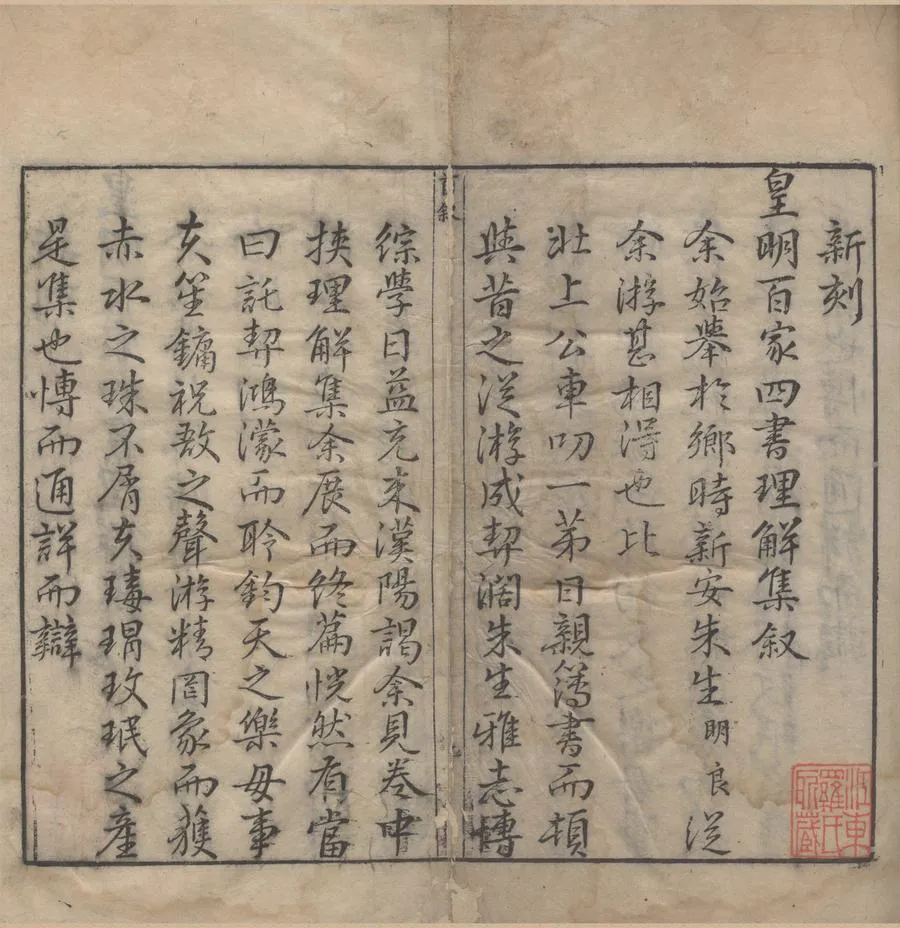 新刻
皇明百家四書理解集叙
余始舉於鄉時新安朱生明良從
余游甚相得也比
壯上公車叨一第日親簿書而頓
與昔之從游成契濶朱生雅志博
綜學日益充来漢陽謁余見卷中
挾理解集余展而終篇恍然有當
曰託契鴻濛而聆鈞天之樂毋事
夫笙鏞祝敔之聲游精罔象而獲
赤水之珠不屑夫瑇瑁玫珉之產
是集也博而通詳而辯
首叙
江東羅氏所藏